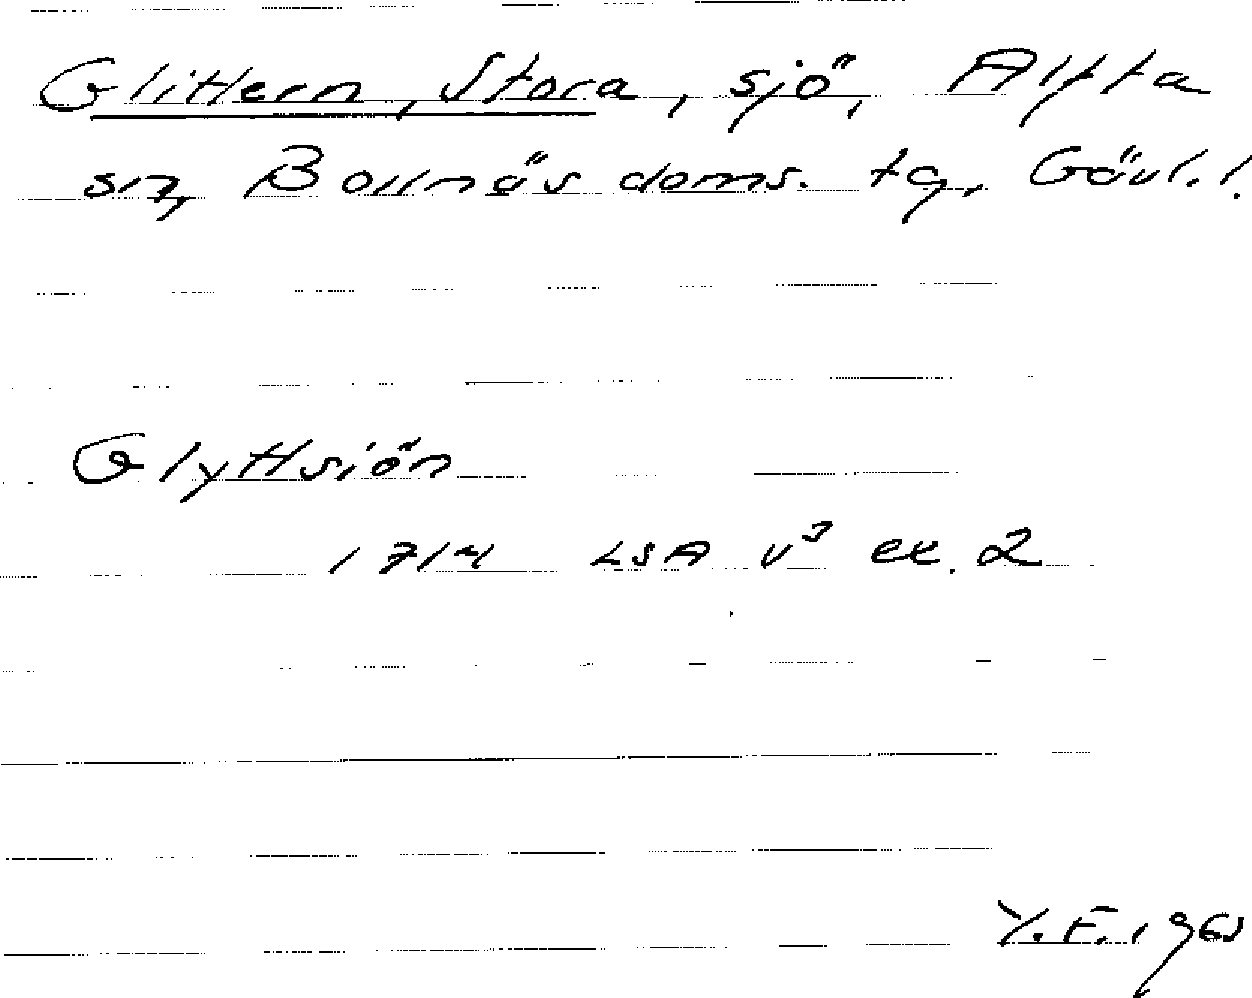 Glittern, Stora, sjö, Alfta
sn, Bollnäs doms. tg, Gävl. l.
Glyttsiön
1714 LSA v³ ex. 2
Y. F. 1963